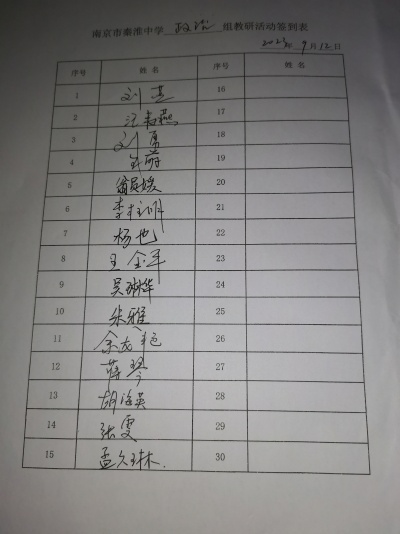 南京市秦淮中学 政治 组教研活动签到表
2023年 9月12日
序号 姓名 序号 姓名
1 刘 16
2 汪春燕 17
3 刘勇 18
4 19
5 翁昆媛 20
6 李 21
7 杨也 22
8 王全军 23
9 吴琳华 24
10 朱雅 25
11 余龙艳 26
12 蒋琴 27
13 胡海英 28
14 张雯 29
15 孟久琳 30